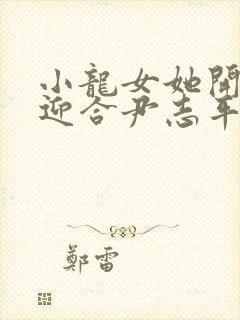 小龍女她開
迎合尹志平
鄭雷